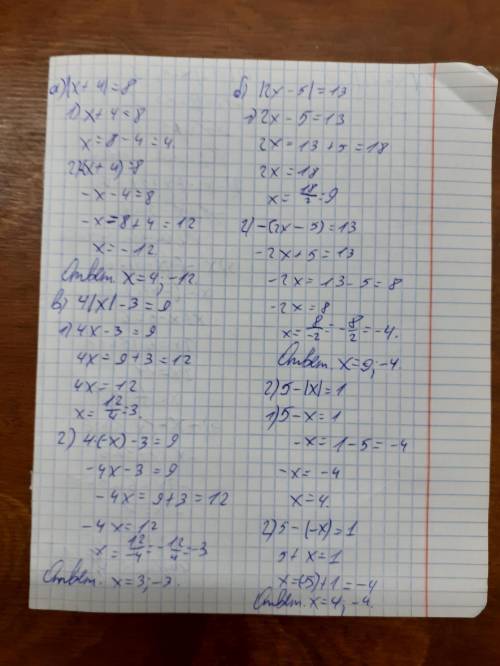 а) |x + 4| = 8
1) x + 4 = 8
x = 8 - 4 = 4
2) -(x + 4) = 8
-x - 4 = 8
-x = 8 + 4 = 12
x = -12
Ответ. x = 4; -12
в) 4|x| - 3 = 9
1) 4x - 3 = 9
4x = 9 + 3 = 12
4x = 12
x = 12/4 = 3.
2) 4(-x) - 3 = 9
-4x - 3 = 9
-4x = 9 + 3 = 12
-4x = 12
x = 12/-4 = -12/4 = -3
Ответ. x = 3; -3.
б) |2x - 5| = 13
1) 2x - 5 = 13
2x = 13 + 5 = 18
2x = 18
x = 18/2 = 9
2) -(2x - 5) = 13
-2x + 5 = 13
-2x = 13 - 5 = 8
-2x = 8
x = 8/-2 = -8/2 = -4.
Ответ. x = 9; -4.
г) 5 - |x| = 1
1) 5 - x = 1
-x = 1 - 5 = -4
-x = -4
x = 4.
2) 5 - (-x) = 1
5 + x = 1
x = (-5) + 1 = -4
Ответ. x = 4; -4.